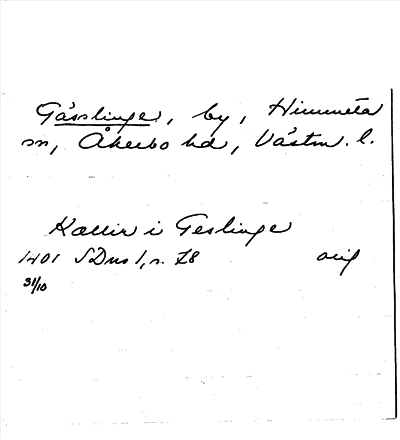 Gässlinge, by, Himmeta
sn, Åkerbo hd, Västm. l.
Kættir i Geslinge
1401 SDns 1, s. 78 orig
31/10